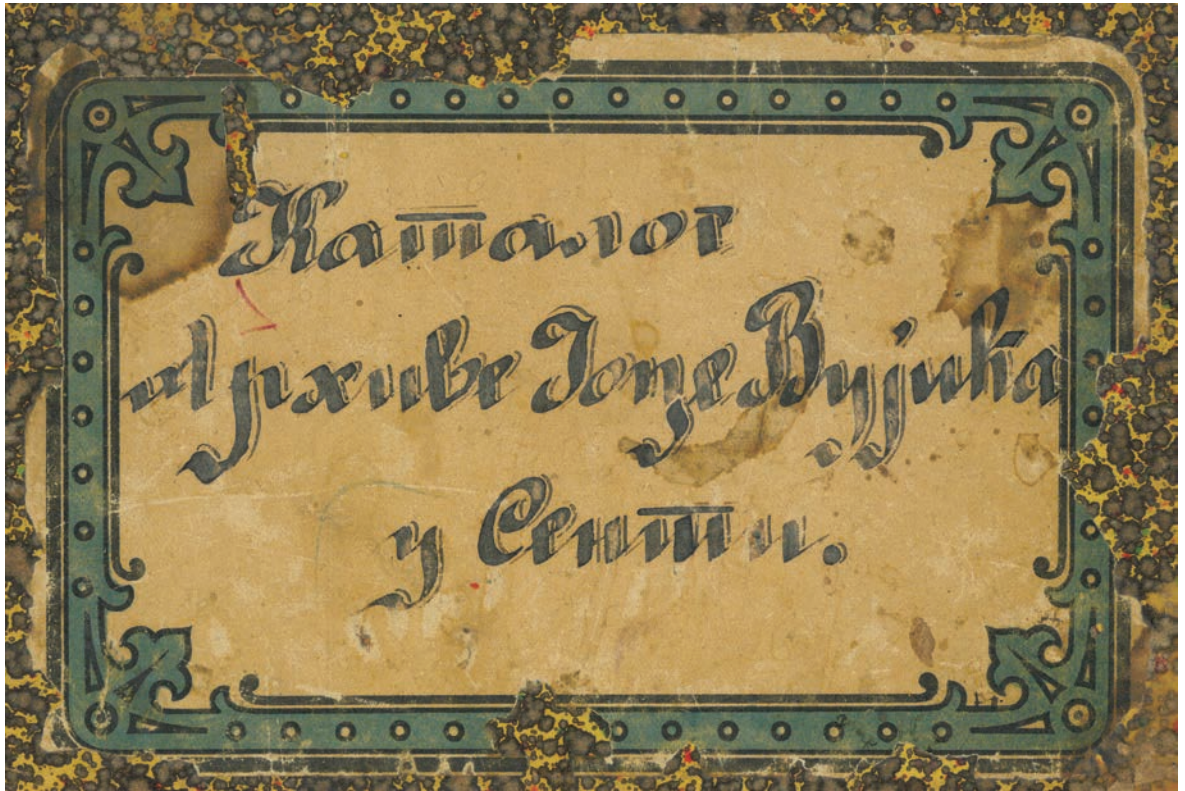 Каталог
Архиве Јоце Вујића
у Сенти.